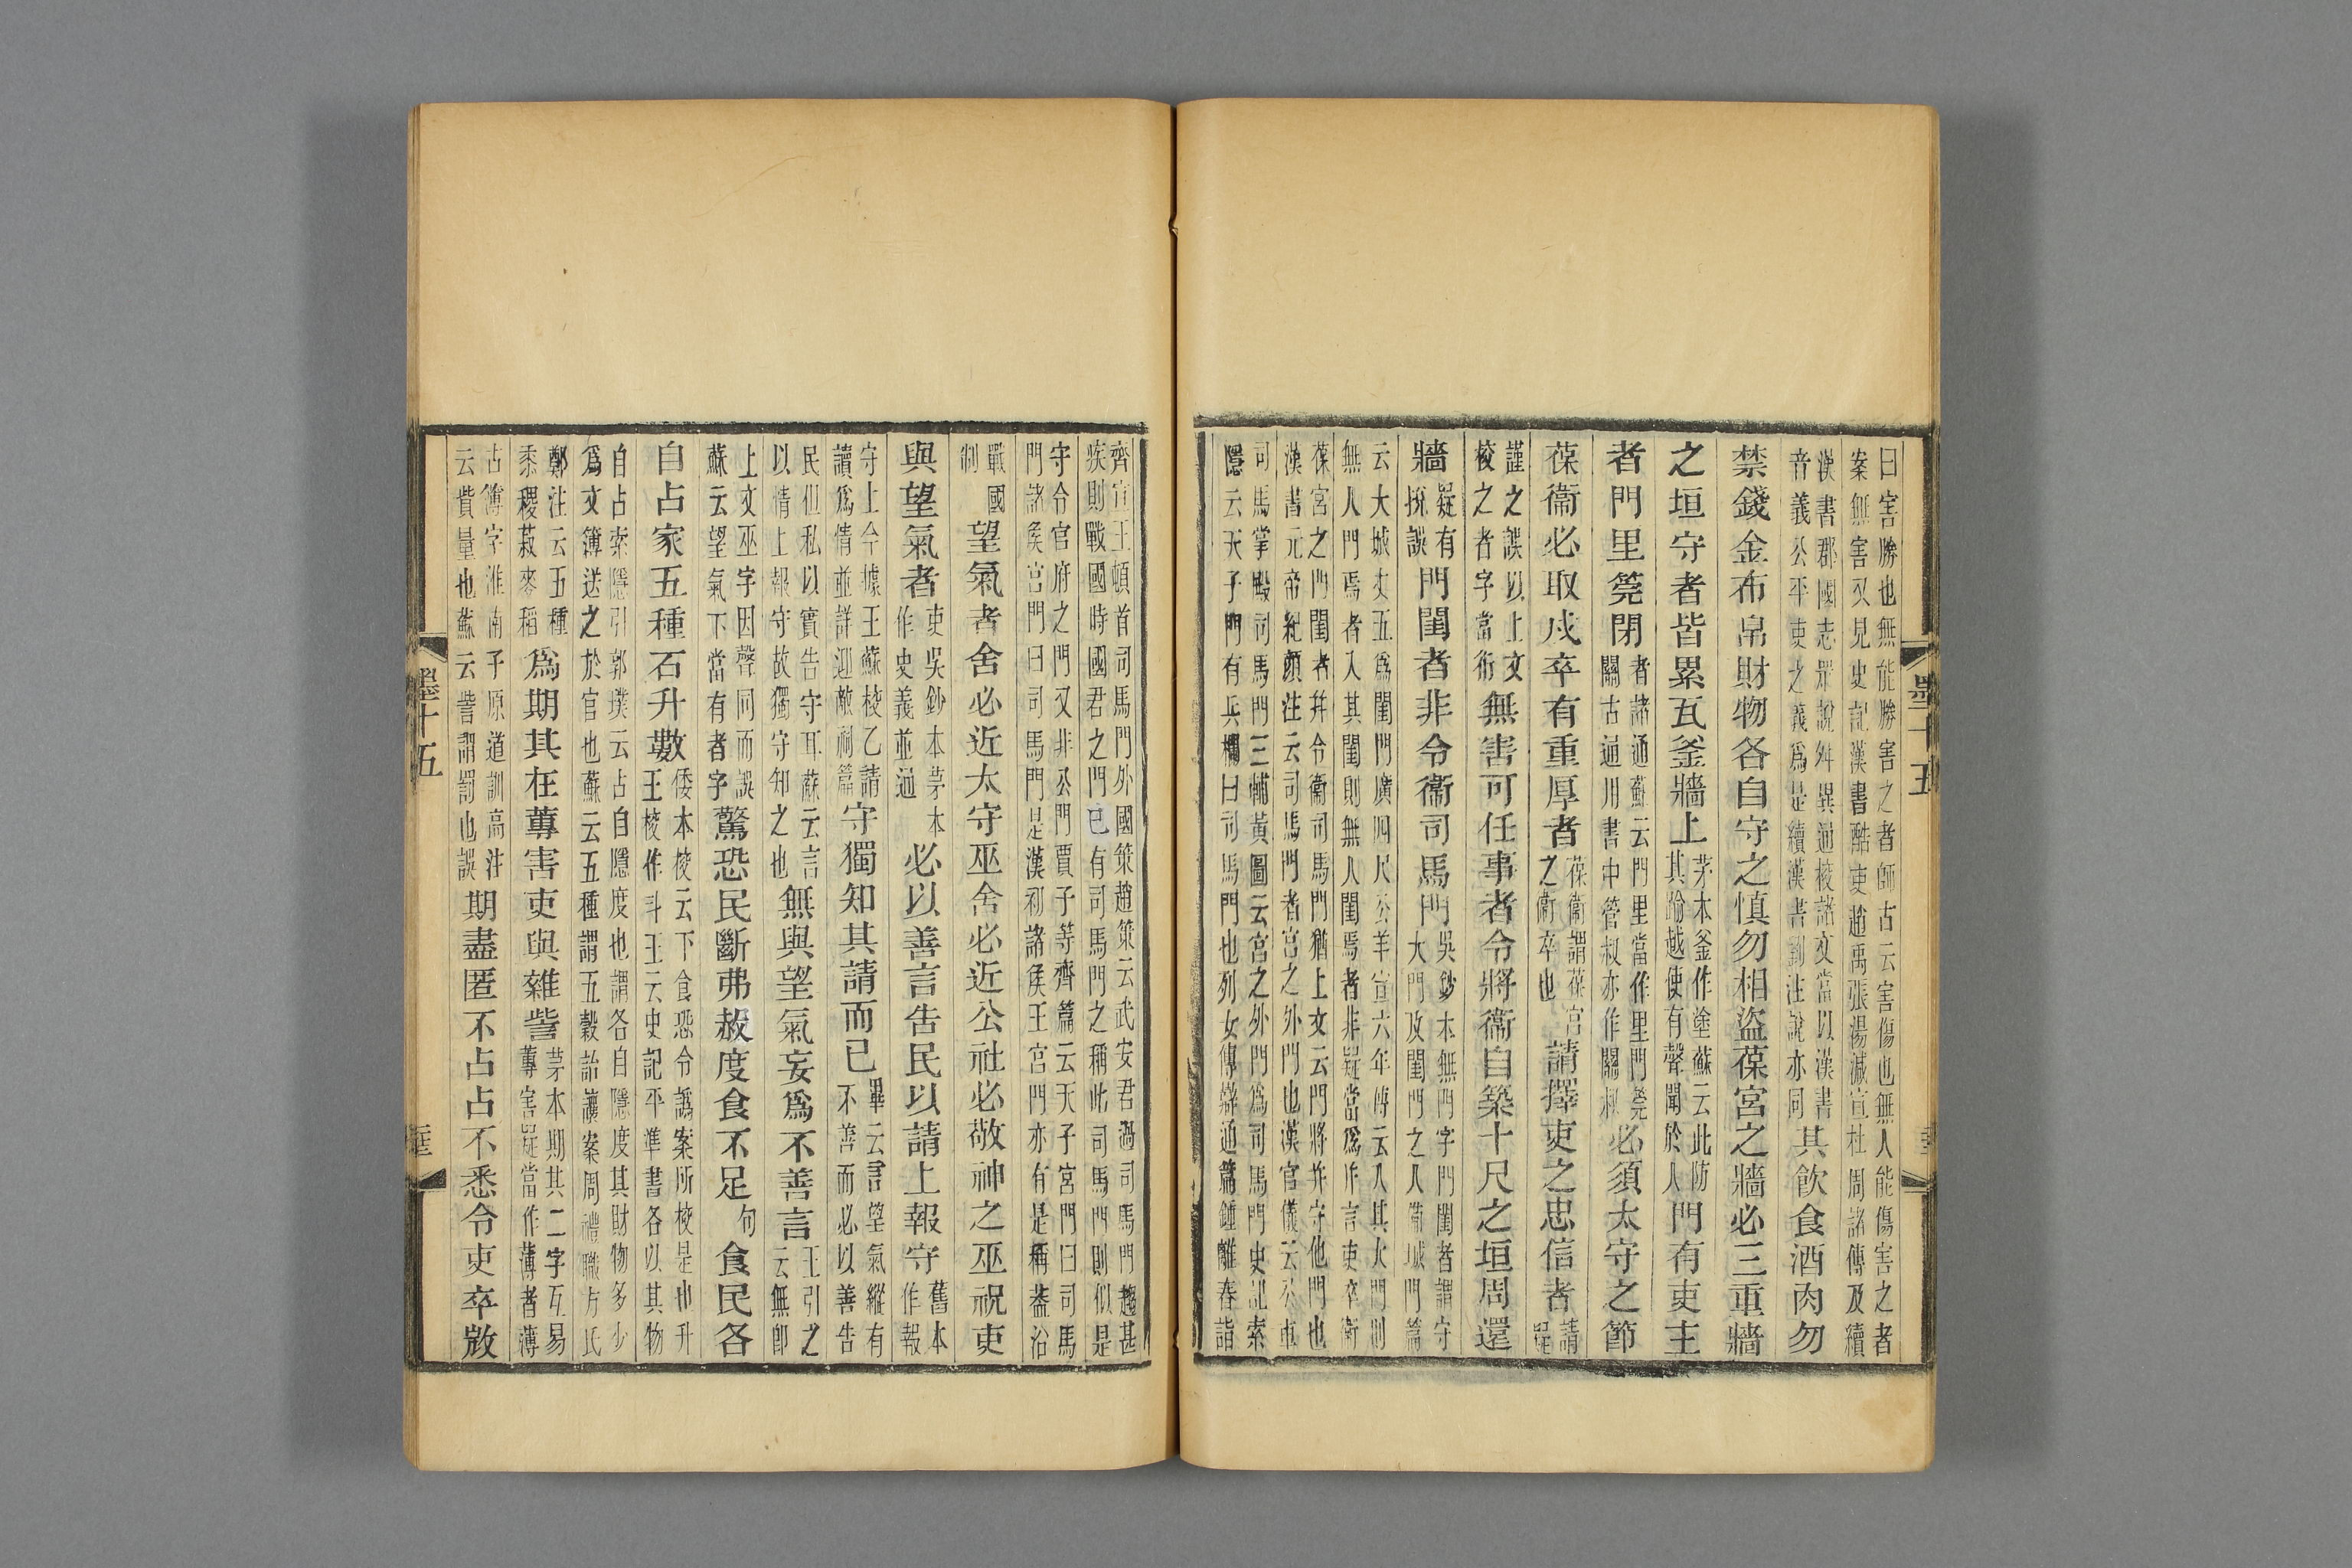 曰害勝也無能勝害之者師古云害傷也無人能傷害之者
案無害又見史記漢書酷吏趙禹張湯減宣杜周諸傳及續
漢書郡國志眾說舛異通校諸文當以漢書
音義公平吏之義爲是續漢書劉注說亦同其飮食酒肉勿
禁錢金布帛財物各自守之愼勿相盜葆宮之牆必三重牆
之垣守者皆累瓦釜牆上
茅本釜作塗蘇云此防
其踰越使有聲聞於人門有吏主
者門里筦閉
者諸通蘇云門里當作里門筦
關古通用書中管叔亦作關叔必須太守之節
葆衞必取戍卒有重厚者
葆衞謂葆宮
之衞卒也請擇吏之忠信者
請疑
謹之誤以上文
校之者字當衍無害可任事者令將衞自築十尺之垣周還
牆
疑有
捝誤門閨者非令衞司馬門
吳鈔本無門字門閨者謂守
大門及閨門之人備城門篇
云大城丈五爲閨門廣四尺公羊宣六年傳云入其大門則
無人門焉者入其閨則無人閨焉者非疑當爲并言吏卒衞
葆宮之門閨者幷令衞司馬門猶上文云門將幷守他門也
漢書元帝紀顏注云司馬門者宮之外門也漢官儀云公車
司馬掌殿司馬門三輔黃圖云宮之外門爲司馬門史記索
隱云天子門有兵欄曰司馬門也列女傳辯通篇鍾離春詣
齊宣王頓首司馬門外國策趙策云武安君過司馬門趨甚
疾則戰國時國君之門已有司馬門之稱此司馬門則似是
守令官府之門又非公門賈子等齊篇云天子宮門曰司馬
門諸侯宮門曰司馬門是漢初諸侯王宮門亦有是稱蓋沿
戰國
制望氣者舍必近太守巫舍必近公社必敬神之巫祝吏
與望氣者
吏吳鈔本茅本
作史義並通必以善言告民以請上報守
舊本
作報
守上今據王蘇校乙請
讀爲情並詳迎敵祠篇守獨知其請而已
畢云言望氣縱有
不善而必以善告
民但私以實告守耳蘇云言
以情上報守故獨守知之也無與望氣妄爲不善言
王引之
云無卽
上文巫字因聲同而誤
蘇云望氣下當有者字驚恐民斷弗赦度食不足
句
食民各
自占家五種石升數
倭本校云下食恐令譌案所校是也升
王校作斗王云史記平準書各以其物
自占索隱引郭璞云占自隱度也謂各自隱度其財物多少
爲文簿送之於官也蘇云五種謂五穀詒讓案周禮職方氏
鄭注云五種
黍稷菽麥稻爲期其在蓴害吏與雜訾
茅本期其二字互易
蓴害疑當作薄者薄
古簿字淮南子原道訓高注
云訾量也蘇云訾謂罰也誤期盡匿不占占不悉令吏卒㪜
墨十五